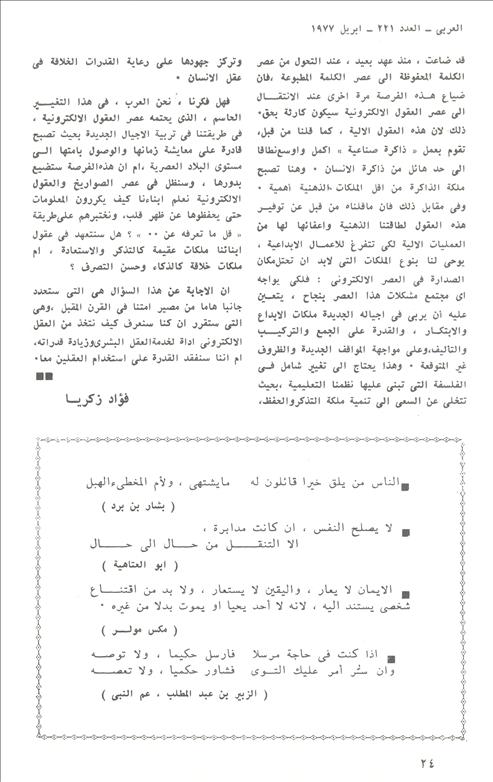 العربى ــ العدد ٢٢١ ــ ابريل ١٩٧٧
قد ضاعت ، منذ عهد بعيد ، عند التحول من عصر
الكلمة المحفوظة الى عصر الكلمة المطبوعة ،فان
ضياع هـذه الفرصة مرة اخرى عند الانتقـال
الى عصر العقول الالكترونية سيكون كارثة بحق٠
ذلك لان هذه العقول الالية ، كما قلنا من قبل،
تقوم بعمل « ذاكرة صناعية » اكمل واوسع نطاقا
الى حد هائل من ذاكرة الانسان ٠ وهنا تصبح
ملكة الذاكرة من اقل الملكات الذهنية اهمية ٠
وفى مقابل ذلك فان ماقلناه من قبل عن توفيـر
هذه العقول لطاقتنا الذهنية واعفائها لها من
العمليات الالية لكى تتفرغ للاعمـال الابداعية ،
يوحى لنا بنوع الملكات التى لابد ان تحتل مكان
الصدارة فى العصر الالكترونى : فلكى يواجه
اى مجتمع مشكلات هذا العصر بنجاح ، يتعـين
عليه أن يربى فى اجياله الجديدة ملكات الابداع
والابتكـار ، والقدرة على الجمع والتركيـب
والتاليف،وعلى مواجهة المواقف الجديدة والظروف
غير المتوقعة ٠ وهذا يحتاج الى تغيير شامل فـى
الفلسفة التى تبنى عليها نظمنا التعليمية ،بحيث
تتخلى عن السعى الى تنمية ملكة التذكر والحفظ،
وتركز جهودها على رعاية القدرات الخلاقة فى
عقل الانسان ٠
فهل فكرنا ، نحن العرب ، فى هذا التغيـير
الحاسم ، الذى يحتمه عصر العقول الالكترونية ،
فى طريقتنا فى تربية الاجيال الجديدة بحيث تصبح
قادرة على معايشة زمانها والوصول بامتها الـى
مستوى البلاد العصرية ،ام ان هذه الفرصة ستضيع
بدورها ، وسنظل فى عصر الصواريخ والعقول
الالكترونية نعلم ابناءنا كيف يكررون المعلومات
حتى يحفظوها عن ظهر قلب، ونختبرهم على طريقة
« قل ما تعرفه عن ٠٠ » ؟ هل سنتعهد فى عقول
ابنائنا ملكات عقيمة كالتذكر والاستعادة ، ام
ملكات خلاقة كالذكاء وحسن التصرف ؟
ان الاجابة عن هذا السؤال هى التى ستحدد
جانبا هاما من مصير امتنا فى القرن المقبل ،وهى
التى ستقرر ان كنا سنعرف كيف نتخذ من العقل
الالكترونى اداة لخدمة العقل البشرى وزيادة قدراته،
ام اننا سنفقد القدرة على استخدام العقلين معا٠
فؤاد زكريـا
الناس من يلق خيرا قائلون له مايشتهى ، ولأم المخطىء الهبل
( بشار بن برد )
لا يصلح النفس ، ان كانت مدابرة ،
الا التنقـــل من حـــال الى حـــال
( ابو العتاهية )
الايمان لا يعار ، واليقين لا يستعار ، ولا بد من اقتنـــاع
شخصى يستند اليه ، لانه لا أحد يحيا او يموت بدلا من غيره ٠
( مكس مولـر )
اذا كنت فى حاجة مرسلا فارسل حكيما ، ولا توصـه
وان ستُر أمر عليك التـوى فشاور حكميا ، ولا تعصـه
( الزبير بن عبد المطلب ، عم النبى )
٢٤